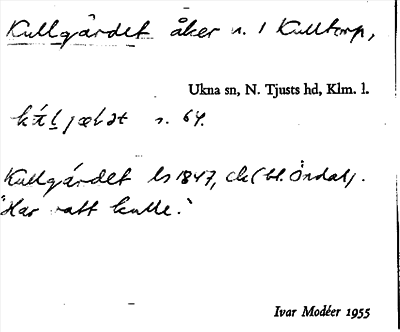 Kullgärdet åker n. 1 Kulltorp,
Ukna sn, N. Tjusts hd, Klm. l.
s. 64.
Kullgärdet ls 1847, ck (bl. Öndal).
"Har vatt kulle."
Ivar Modéer 1955